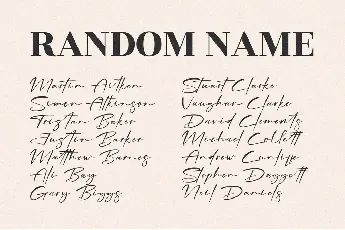 RANDOM NAME
Martin Aitken
Simon Atkinson
Triztan Baker
Juztin Barker
Matthew Barnes
Ali Bay
Gary Biggs
Stuart Clarke
Vaughan Clarke
David Clements
Michael Collett
Andrew
Stephen Daggett
Neil Daniels